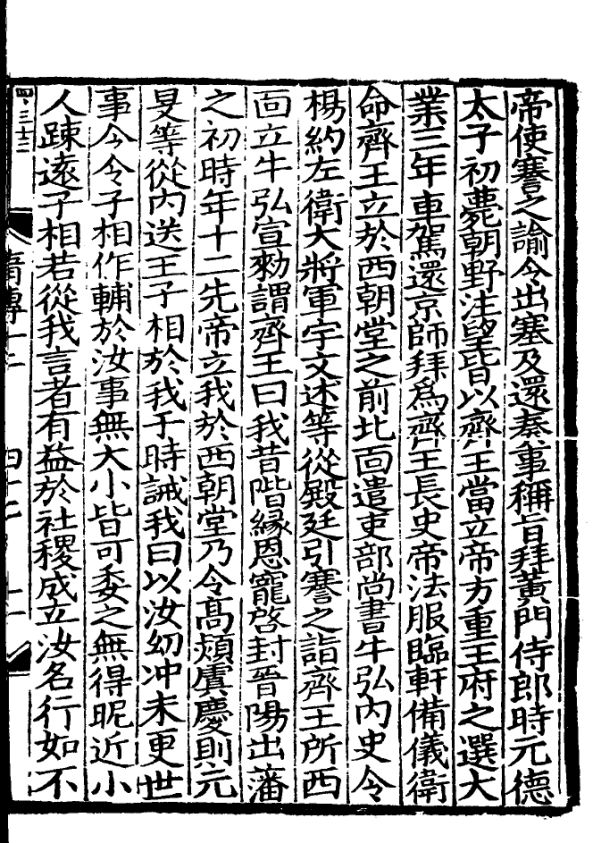 帝使謇之諭令出塞及還奏事稱旨拜黃門侍郎時元德
太子初薨朝野注望皆以齊王當立帝方重王府之選大
業三年車駕還京師拜爲齊王長史帝法服臨軒備儀衛
命齊王立於西朝堂之前北面遣吏部尚書牛弘内史令
楊約左衛大將軍宇文述等從殿廷引謇之詣齊王所西
面立牛弘宣勑謂齊王曰我昔階緣恩寵啓封晉陽出藩
之初時年十二先帝立我於西朝堂乃令高熲虞慶則元
旻等從内送王子相於我于時誡我曰以汝幼冲未更世
事今令子相作輔於汝事無大小皆可委之無得昵近小
人踈遠子相若從我言者有益於社稷成立汝名行如不